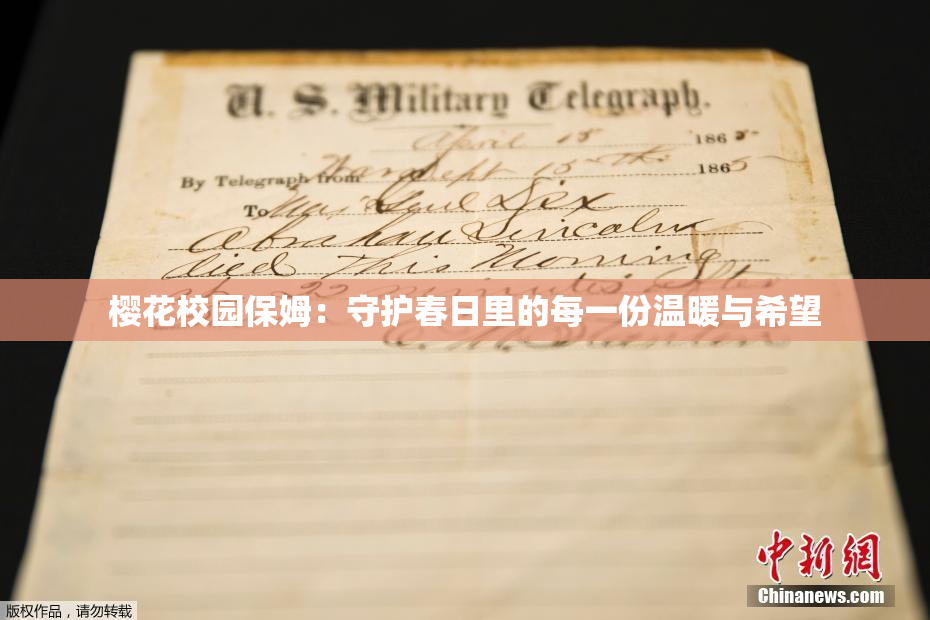 U. S. Military Telegraph.
April 15 1865
By Telegraph from War Dept 15th 1865
To Maj Genl Dix
Abraham Lincoln
died This Morning
at 22 minutes after
樱花校园保姆：守护春日里的每一份温暖与希望
中新网
Chinanews.com
版权作品，请勿转载